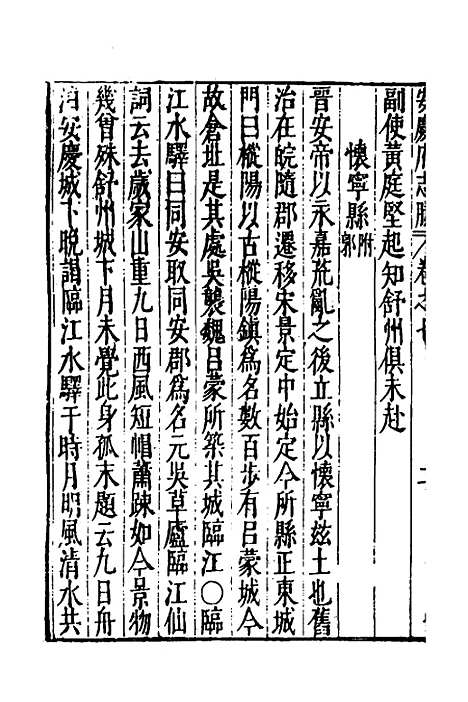 安慶府志
副使黃庭堅起知舒州俱未赴
懷寧縣附郭
晉安帝以永嘉荒亂之後立縣以懷寧兹土也舊
治在皖隨郡遷移宋景定中始定今所縣正東城
門曰樅陽以古樅陽鎮爲名數百步有呂蒙城今
故倉址是其處吳襲魏呂蒙所築其城臨江○臨
江水驛曰同安取同安郡爲名元吳草廬臨江仙
詞云去歲家山重九日西風短帽蕭疎如今景物
幾曾殊舒州城下月未覺此身孤末題云九日舟
泊安慶城下晚誦臨江水驛于時月明風清水共